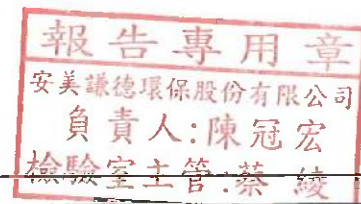 報告專用章
安美謙德環保股份有限公司
負責人:陳冠宏
檢驗室主管:蔡綾